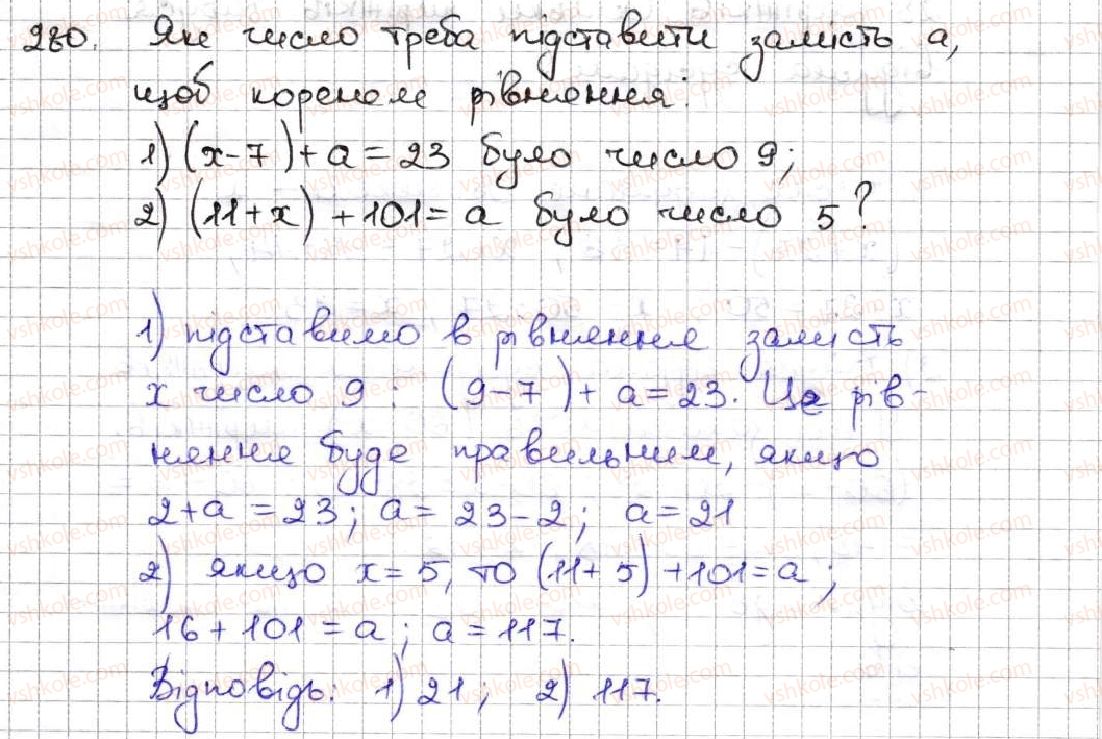 280. Яке число треба підставити замість а,
щоб коренем рівняння:
1) (x-7)+a=23 було число 9;
2) (11+x)+101=a було число 5?
1) підставимо в рівняння замість
x число 9: (9-7)+a=23. Це рів-
няння буде правильним, якщо
2+a=23; a=23-2; a=21
2) якщо x=5, то (11+5)+101=a;
16+101=a; a=117.
Відповідь: 1) 21; 2) 117.